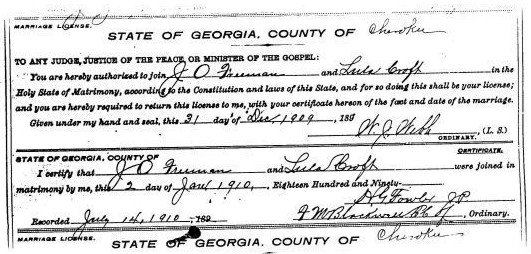 MARRIAGE LICENSE.
STATE OF GEORGIA, COUNTY OF Cherokee
TO ANY JUDGE, JUSTICE OF THE PEACE OR MINISTER OF THE GOSPEL:
You are hereby authorized to join J O Freeman and Lula Croft in the
Holy State of Matrimony, according to the Constitution and laws of this State, and for so doing this shall be your license;
and you are hereby required to return this license to me, with your certificate hereon of the fact and date of the marriage.
Given under my hand and seal, this 31 day of Dec 1909, 189
W. J. Webb
ORDINARY, (L. S.)
CERTIFICATE.
STATE OF GEORGIA, COUNTY OF
I certify that J O Freeman and Lula Croft were joined in
matrimony by me, this 2 day of Jan 1910, Eighteen Hundred and Ninety-
H G Fowler J.P.
Recorded July 14, 1910, 189 Blackwell, Ordinary.
MARRIAGE LICENSE.
STATE OF GEORGIA, COUNTY OF Cherokee